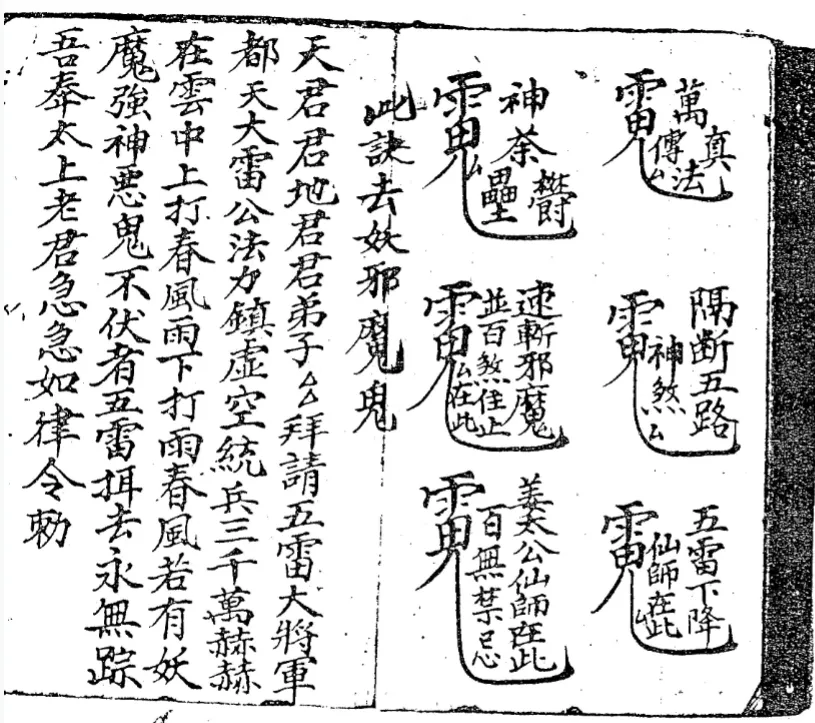 萬真
傳法
隔斷五路
神煞
五雷下降
仙師在此
神荼
鬱壘
速斬邪魔
並百煞住止
在此
姜太公仙師在此
百無禁忌
此訣去妖邪魔鬼
天君君地君君弟子厶厶拜請五雷大將軍
都天大雷公法力鎮虛空統兵三千萬赫赫
在雲中上打春風雨下打雨春風若有妖
魔強神惡鬼不伏者五雷挕去永無踪
吾奉太上老君急急如律令勅